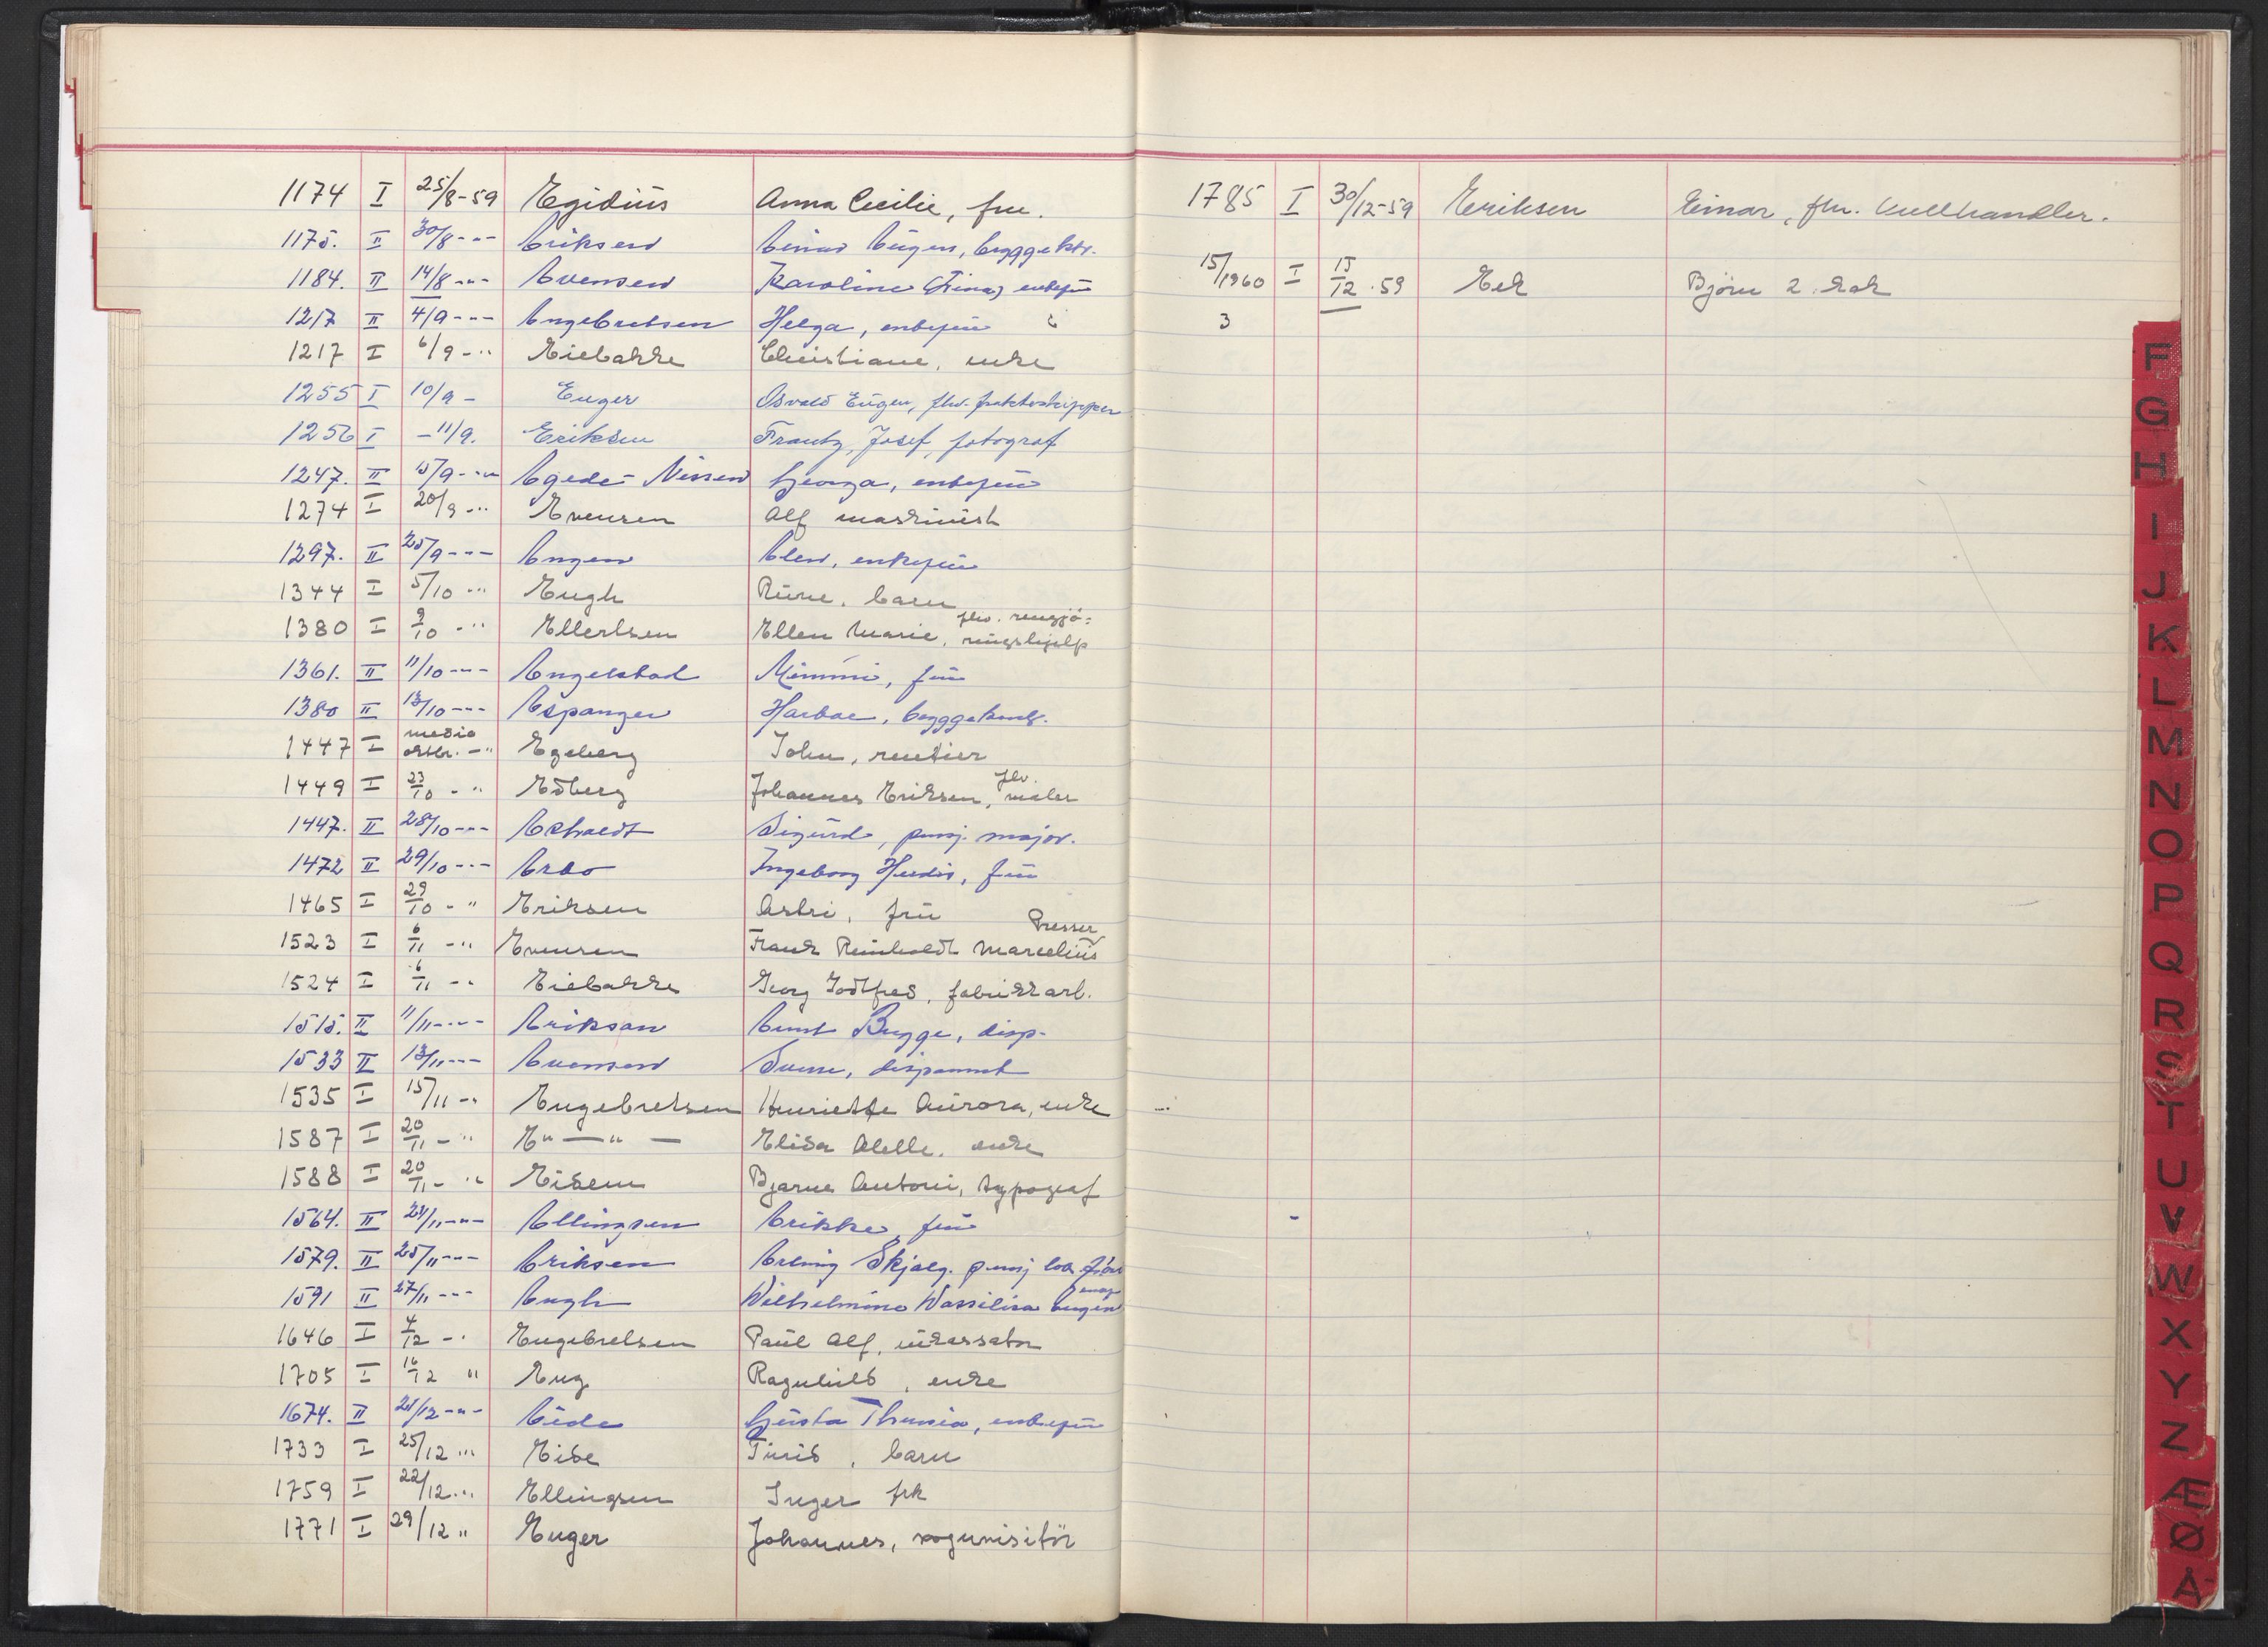 1174 I 25/8-59 Egidius Anna Cecilie, fru.
1175. II 30/8-"- Eriksen Einar Eugen, byggektr.
1184. II 14/8-"- Evensen Karoline (Lina) enkefru
1217 II 4/9-"- Engebretsen Helga, enkefru
1217 I 6/9-" Eiebakke Christiane, enke
1255 I 10/9- Enger Osvald Eugen, fhv. fraktskipper
1256 I -11/9. Eriksen Frantz, Josef, fotograf
1247. II 15/9-"- Egede-Nissen Georga, enkefru
1274 I 20/9-" Evensen Alf maskinist
1297. II 25/9-"- Engen Elen, enkefru
1344 I 5/10-" Engh Rune, barn
1380 I 9/10-" Ellertsen Ellen Marie, fhv. rengjø-
ringshjelp
1361. II 11/10-"- Engelstad Mimmi, fru
1380 II 13/10-"- Espanger
1447 I medio oktbr.-" Egeberg John, rentier
1449 I 23/10-" Edberg Johannes Eriksen, fhv. maler
1447. II 28/10-"- Sigurd, pensj. major.
1472 II 29/10-"- Erbo Ingeborg Herdis, fru
1465 I 29/10-" Eriksen Astri, fru
1523 I 6/11-" Evensen Frank Reinholdt Marcelius Presser
1524 I 6/11-" Eiebakke Georg Godtfred, fabrikkarb.
1515. II 11/11-"- Erikson Bernt Bugge, disp.
1533 II 13/11-"- Evensen Sverre, disponent
1535 I 15/11-" Engebretsen Henriette Aurora, enke
1587 I 20/11-" E"—"— Elida Alette, enke
1588 I 20/11-" Eidem Bjarne Antoni, typograf
1564. II 21/11-"- Ellingsen Erikke, fru
1579. II 25/11-"- Eriksen Erling Skjalg. pensj lok.fører
1591 II 27/11-"- Engh Wilhelmine Wassilisa Eugenie
1646 I 4/12-" Engebretsen Paul Alf, inkassator
1705 I 16/12 " Eng Ragnhild, enke
1674. II 21/12-"- Eide Gusta Thensia, enkefru
1733 I 25/12 " Eide Turid, barn
1759 I 22/12 " Ellingsen Inger frk
1771 I 29/12 " Enger Johannes, rogunisitør
1785 I 30/12-59 Eriksen Einar, fhv. kullhandler.
15/1960 I 15/12.59 Eek Bjørn
3
F
G
H
I
J
K
L
M
N
O
P
Q
R
S
T
U
V
W
X
Y
Z
Æ
Ø
Å